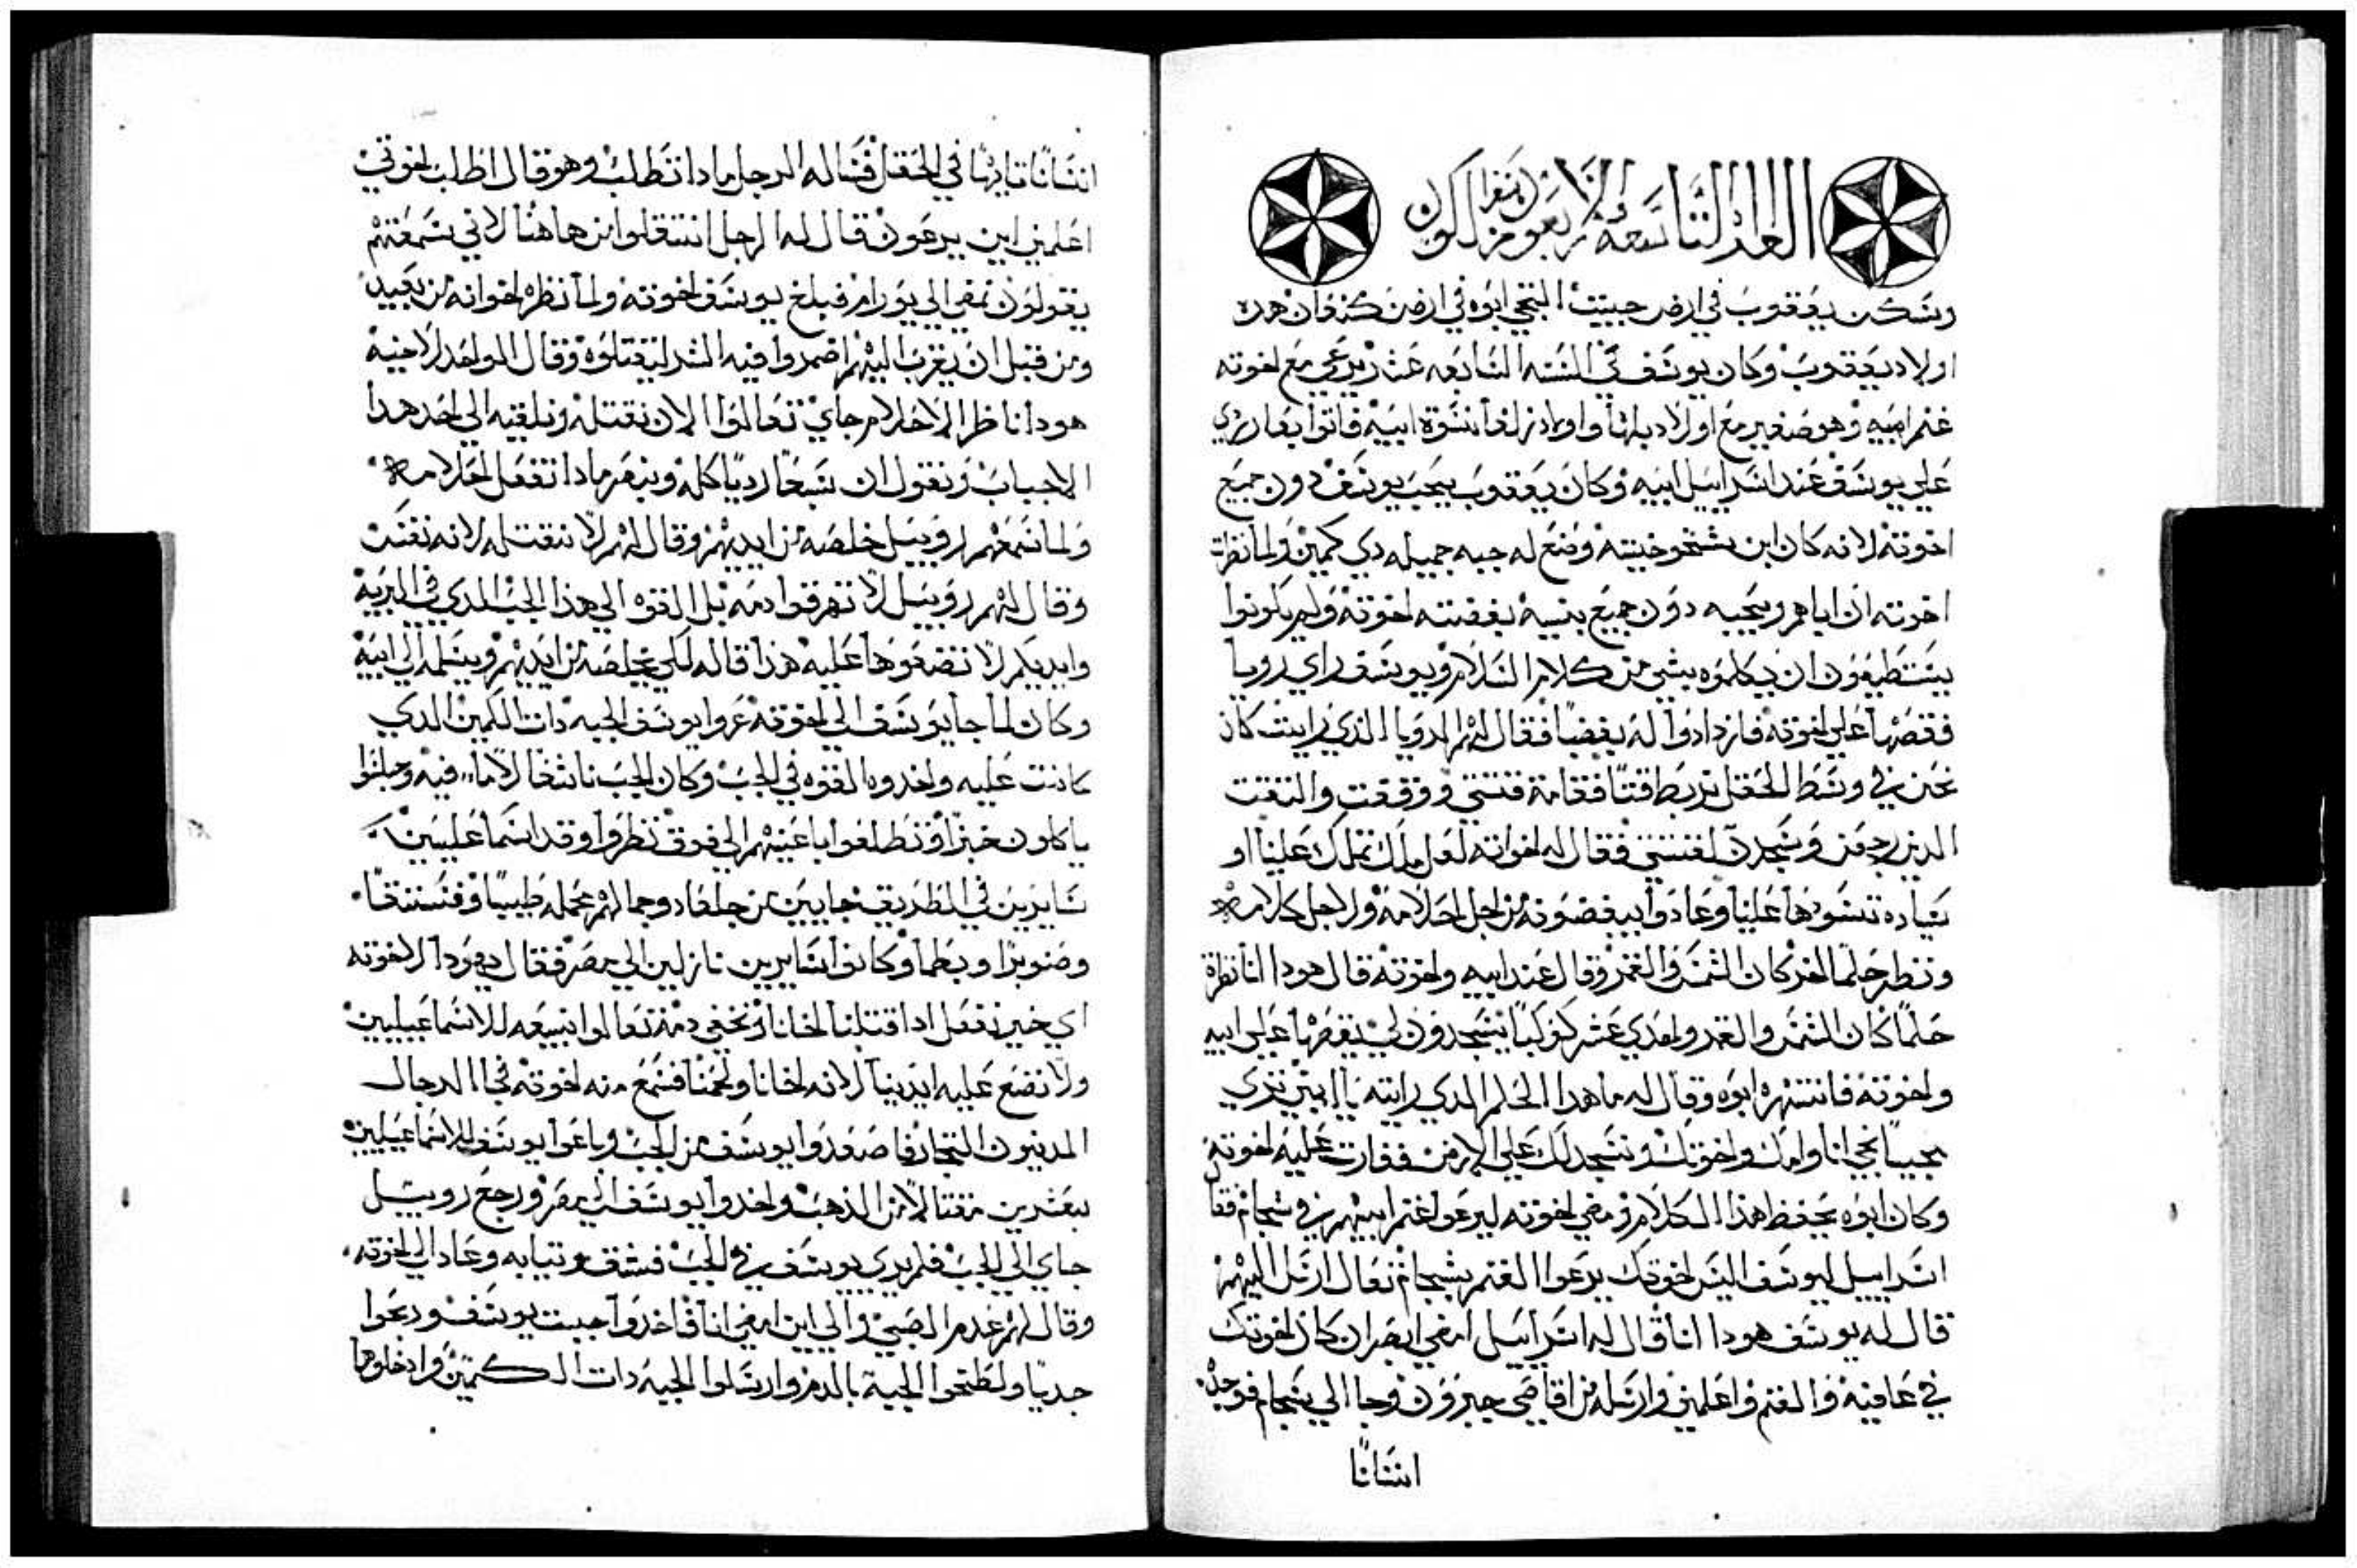 القراه التاسعه والاربعون من سفر التكوين
وسكن يعقوب في ارض حيت التجي ابوه في ارض كنعان هده
اولاد يعقوب وكان يوسف في السنه السابعه عشر يرعي مع اخوته
غنم ابيه وهو صغير مع اولاد بلها واولاد زلفا نسوة ابيه فاتوا بعار ردي
علي يوسف عند اسراييل ابيه وكان يعقوب يحب يوسف دون جميع
اخوته لانه كان ابن شيخوخيته وصنع له جبه جميله دي كمين ولما نظرت
اخوته ان اباهم يحبه دون جميع بنيه بغضته اخوته ولم يكونوا
يستطيعون ان يكلموه بشي من كلام السلام ويوسف راي رويا
فقصها علي اخوته فازدادوا له بغضا فقال لهم الرويا الذي رايت كان
نحن في وسط الحقل نربط قتا فقامة قتتي ووقفت والتفت
الدين رجعن وسجدن لقتتي فقال له اخواته لعل ملك تملك علينا او
سياده تسودها علينا وعادوا يبغضونه من اجل احلامه ولاجل كلامه
ونظر حلما اخر كان الشمس والقمر وقال عند ابيه واخوته قال هودا انا نظرة
حلما كان الشمس والقمر واحدي عشر كوكبا يسجدون لي يقصها علي ابيه
واخوته فانتهره ابوه وقال له ما هدا الحلم الدي رايته يا ابني تري
مجيا نجي انا وامك واخوتك ونسجد لك علي الارض فغارت عليه اخوته
وكان ابوه يحفظ هذا الكلام ومضي اخوته ليرعوا غنم ابيهم في شجام فقال
اسراييل ليوسف اليس اخوتك يرعوا الغنم بشجام تعال ارسل اليهم
قال له يوسف هودا انا قال له اسراييل امضي ابصر ان كان اخوتك
في عافيه والغنم واعلمني وارسله من اقاصي حبرون وجا الي شجام فوجده
انسانا
انسانا تايها في الحقل فساله الرجل مادا تطلب وهو قال اطلب اخوتي
اعلمني اين يرعون قال له الرجل انتقلوا من هاهنا لاني سمعتهم
يقولون نمضي الي يورام فبلغ يوسف اخوته ولما نظره اخوانه من بعيد
ومن قبل ان يقرب اليهم اضمروا فيه الشر ليقتلوه وقال الواحد لاخيه
هودا ناظر الاحلام جاي تعالوا الان نقتله ونلقيه الي احد هدا
الاجباب ونقول ان سبعا رديا اكله ونبصر مادا تفعل احلامه
ولما سمعهم روبيل خلصه من ايديهم وقال لهم لا نقتله لانه نفس
وقال لهم روبيل لا تهرقوا دمه بل القوه الي هذا الجب الدي في البريه
وايديكم لا تضعوها عليه هذا قاله لكي يخلصه من ايديهم ويسلمه الي ابيه
وكان لما جا يوسف الي اخوته عروا يوسف الجبه دات الكمين الدي
كانت عليه واخدوه القوه في الجب وكان الجب ناشفا لا ما فيه وجلسوا
ياكلون خبزا وتطلعوا باعينهم الي فوق نظروا وقد اسماعليين
سايرين في الطريق جايين من جلعاد وجمالهم محمله طيبا وفستقا
وصنوبرا وبطما وكانوا سايرين نازلين الي مصر فقال يهودا لاخوته
اي خير نفعل ادا قتلنا اخانا ونخفي دمه تعالوا نبيعه للاسماعيليين
ولا نضع عليه ايدينا لانه اخانا ولحمنا فسمع منه اخوته فجا الرجال
المدينيون التجار فاصعدوا يوسف من الجب وباعوا يوسف للاسماعيليين
بعشرين مثقالا من الذهب واخدوا يوسف الي مصر ورجع روبيل
جاي الي الجب فلم يري يوسف في الجب فشق ثيابه وعاد الي اخوته
وقال لهم عدم الصبي والي اين امضي انا فاخدوا جبت يوسف ودبحوا
جديا ولطخوا الجبة بالدم وارسلوا الجبه دات الكمين وادخلوها